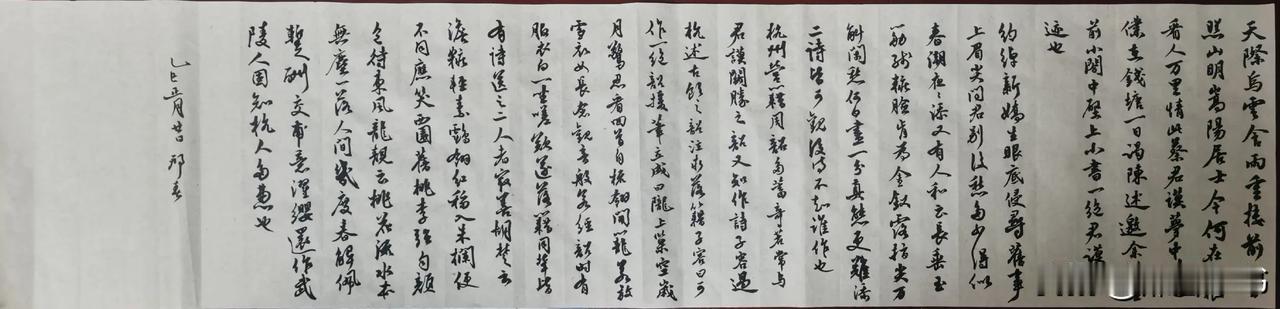 天際烏雲含雨重樓前
照山明嵩陽居士今何在
看人万里情此蔡君謨夢中
僕在錢塘一日謁陳述邀余
前小閣中壁上小書一絕君謨
迹也
約綽新嬌生眼底侵尋舊事
上眉尖問君別後愁多少得似
春潮夜々添又有人和云長垂玉
筯殘糚臉肯為金釵露指尖万
斛閒愁何日盡一分真態更難添
二詩皆可觀後詩不知誰作也
杭州營籍周韶多蓄奇茗常與
君謨鬪勝之韶又知作詩子容過
杭述古飲之韶泣求落籍子容曰可
作一絕韶援筆立成曰隴上巢空歲
月驚忍看回首自梳翎開籠若放
雪衣女長念觀音般若經韶時有
服衣白一坐嗟歎遂落籍同輩皆
有詩送之二人者最善胡楚云
淡糚輕素鶴翎紅移入朱欄便
不同應笑西園舊桃李強勻顏
色待東風龍靚云桃花流水本
無塵一落人間幾度春解佩
暫酬交甫意濯纓還作武
陵人固知杭人多惠也
乙巳正月廿日